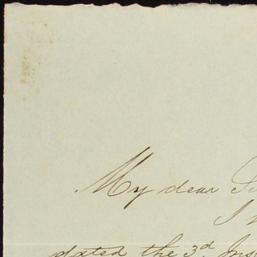 My dear
I
dated the 3d. Inst